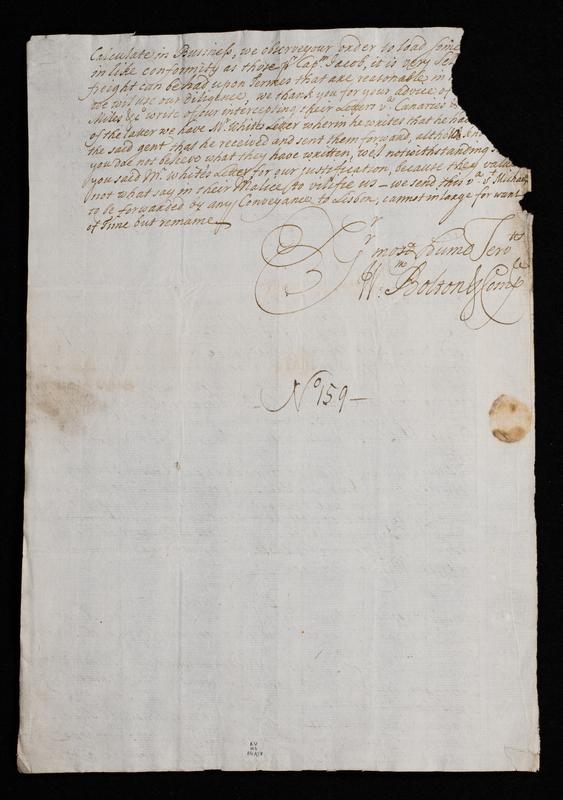 Calculate in Bussiness, we observe your order to load some
in like conformity as those pr Capn Jacob, it is very
freight can be had upon Termes that are reasonable in
we wil use our Diligence, we thank you for your advice of
Miles &c write of our intercepting their Letters va Canaries &
of the latter we have Mr Whites Letter wherin he writes that he had
the said gent that he received and sent them forward, altho
you doe not believe what they have written, wel notwithstanding
you said Mr Whites Letter for our justification, because they
not what say in their Malice, to vilifie us — we send this va St Michaels
to be forwarded by any Conveyance to Lisbon, cannot inlarge for want
of Time but remaine
Sr
Yr most humb Servts
Wm Bolton & Compa
No 159 —